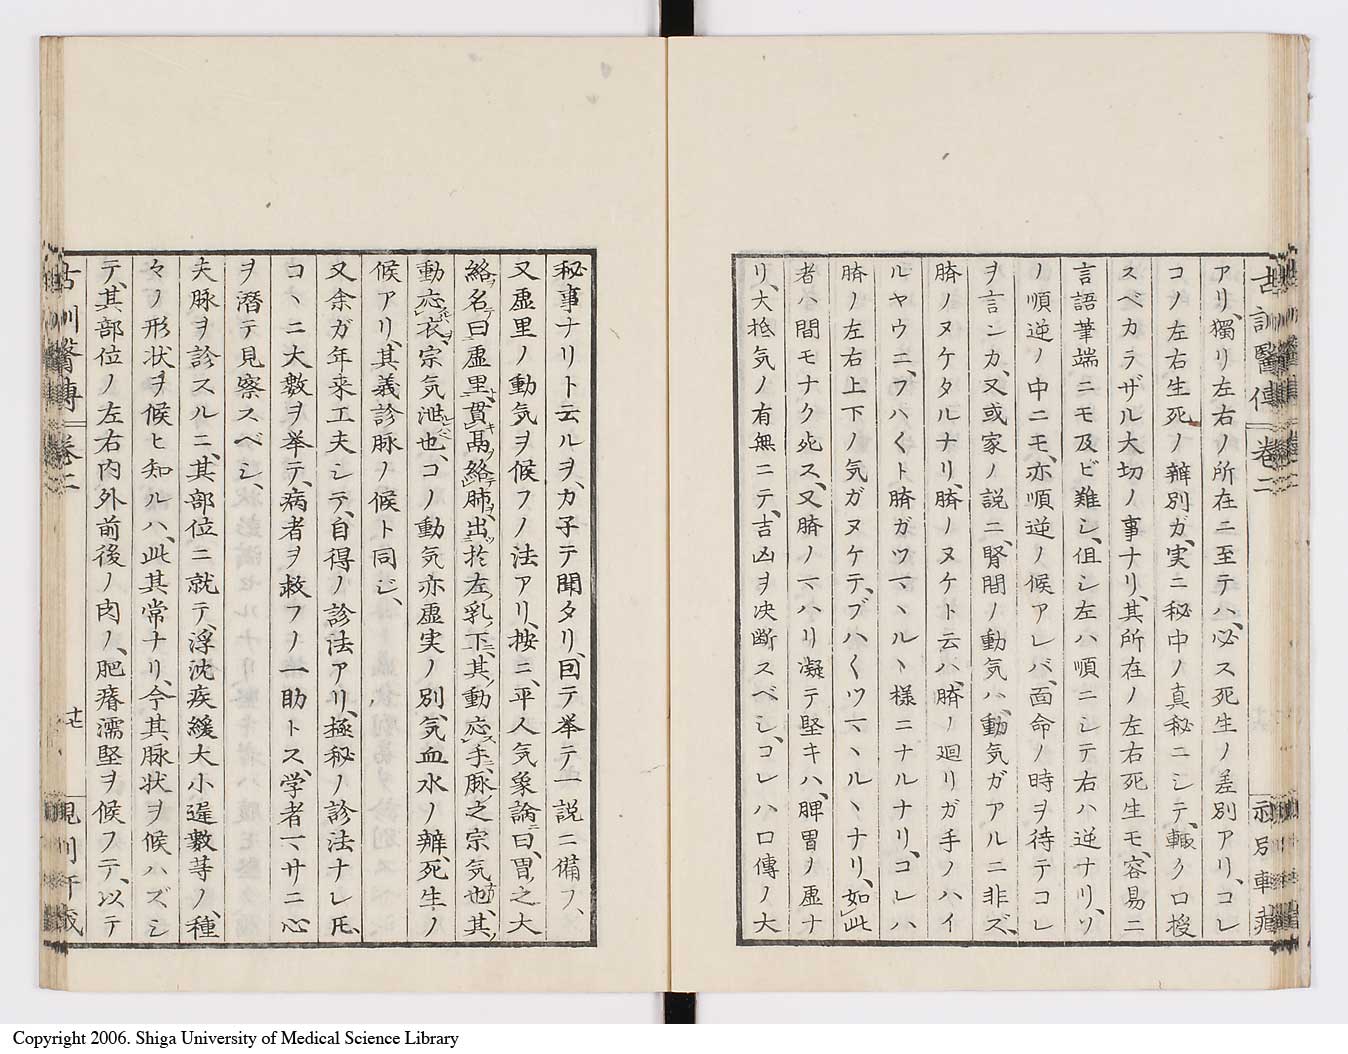 古訓醫傳 卷二
アリ、獨リ左右ノ所在ニ至テハ、必ス死生ノ差別アリ、コレ
コノ左右生死ノ辨別ガ、実ニ秘中ノ真秘ニシテ、輙ク口授
スベカラザル大切ノ事ナリ、其所在ノ左右死生モ、容易ニ
言語筆端ニモ及ビ難シ、但シ左ハ順ニシテ右ハ逆ナリ、ソ
ノ順逆ノ中ニモ、亦順逆ノ候アレバ、面命ノ時ヲ待テコレ
ヲ言ンカ、又或家ノ説ニ、腎間ノ動気ハ、動気ガアルニ非ズ、
臍ノヌケタルナリ、臍ノヌケト云ハ、臍ノ廻リガ手ノハイ
ルヤウニ、フハ〱ト臍ガツマヽルヽ様ニナルナリ、コレハ
臍ノ左右上下ノ気ガヌケテ、ブハ〱ツマヽルヽナリ、如此
者ハ間モナク死ス、又臍ノマハリ凝テ堅キハ、脾胃ノ虚ナ
リ、大抵気ノ有無ニテ、吉凶ヲ决断スベシ、コレハ口傳ノ大
秘事ナリト云ルヲ、カ子テ聞タリ、因テ挙テ一説ニ備フ、
又虚里ノ動気ヲ候フノ法アリ、按ニ、平人気象論曰、胃之大
絡名曰虚里、貫鬲絡肺、出於左乳下、其動応手、脉之宗気也、其
動応衣、宗気泄也、コノ動気亦虚実ノ別、気血水ノ辨、死生ノ
候アリ、其義診脉ノ候ト同ジ、
又余ガ年来工夫シテ、自得ノ診法アリ、極秘ノ診法ナレ𪜈、
コヽニ大數ヲ挙テ、病者ヲ救フノ一助トス、学者マサニ心
ヲ潜テ見察スベシ、
夫脉ヲ診スルニ、其部位ニ就テ、浮沈疾緩大小遲數等ノ、種
々ノ形状ヲ候ヒ知ルハ、此其常ナリ、今其脉状ヲ候ハズシ
テ、其部位ノ左右内外前後ノ肉ノ、肥瘠濡堅ヲ候フテ、以テ
古訓醫傳 卷二
廿七